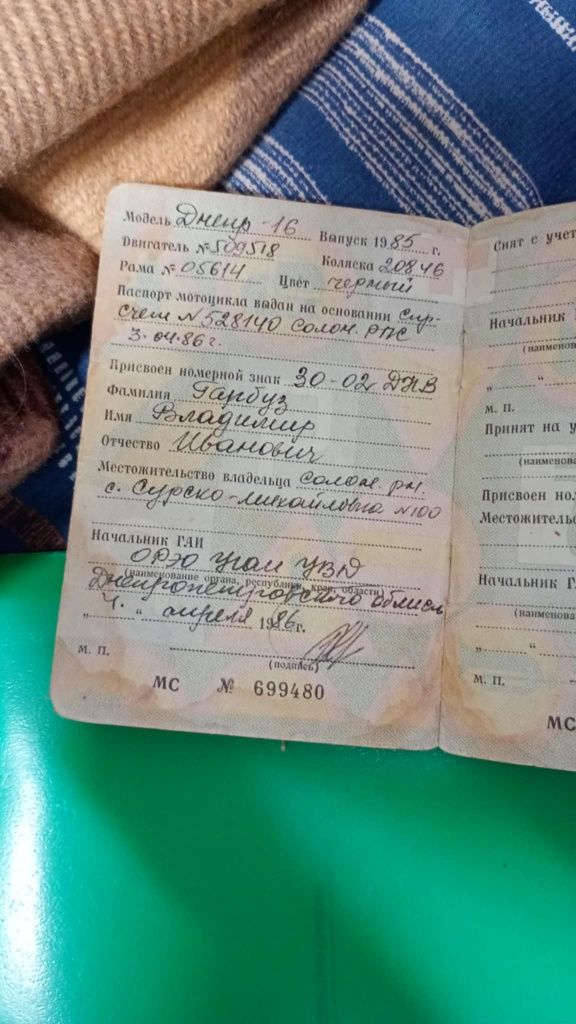 Модель Днепр-16 Выпуск 1985 г.
Двигатель № 509518 Коляска 20846
Рама № 05614 Цвет черный
Паспорт мотоцикла выдан на основании Спр-
счет N 528140 Солон. РПС
3.04.86 г.
Присвоен номерной знак 30-02 ДЯВ
Фамилия Гарбуз
Имя Владимир
Отчество Иванович
Местожительство владельца Солон. рн.
с. Сурско-михайловка N100
Начальник ГАИ
ОРЭО УГАИ УВД
(наименование органа, республики, края, области)
Днепропетровской област
„ 4. “ апреля 1986 г.
М. П.
(подпись)
МС № 699480
Снят с учет
Начальник
(наименов
„ “
М. П.
Принят на у
(наименова
Присвоен но
Местожительс
Начальник Г
(наименова
„ “
М. П.
МС